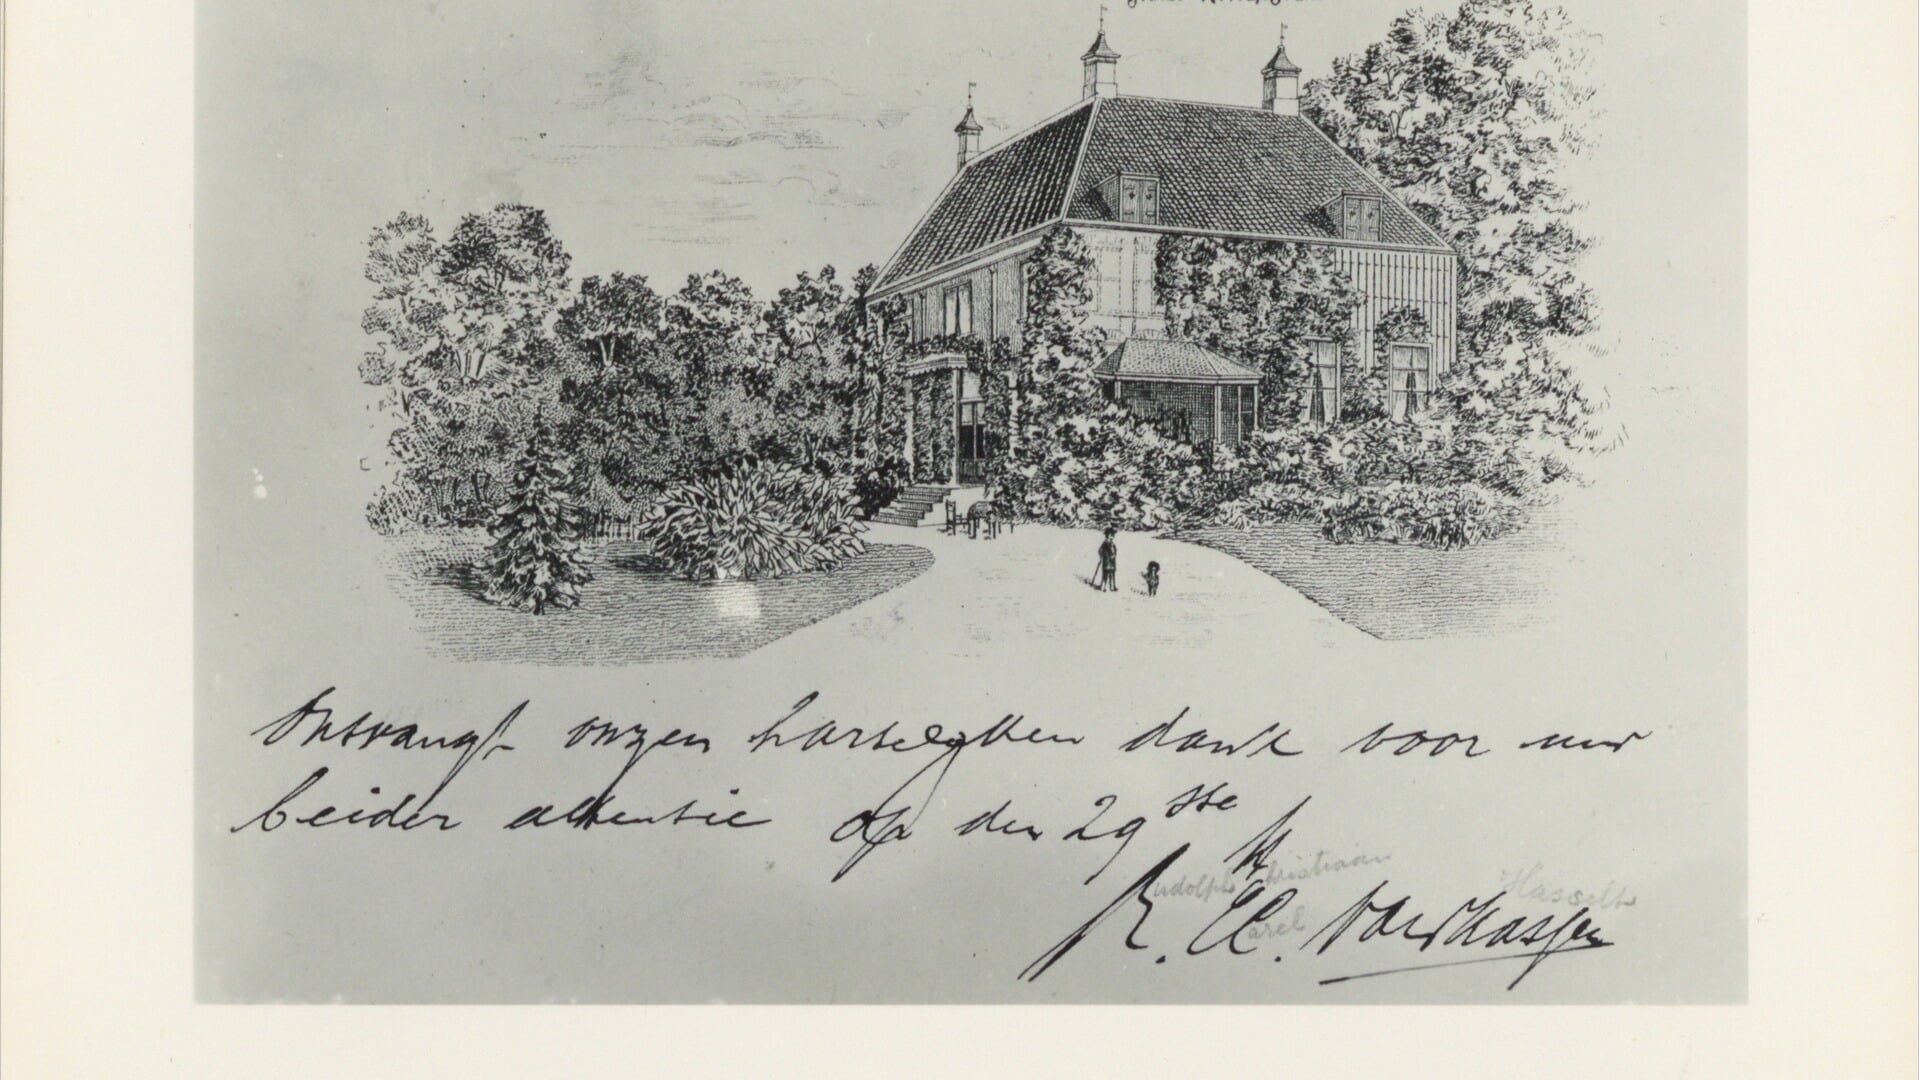 Ontvangt onzen hartelyken dank voor uw
beider attentie op den 29ste
Rudolph Christiaan Hasselt
Karel
R. C. van Hasselt